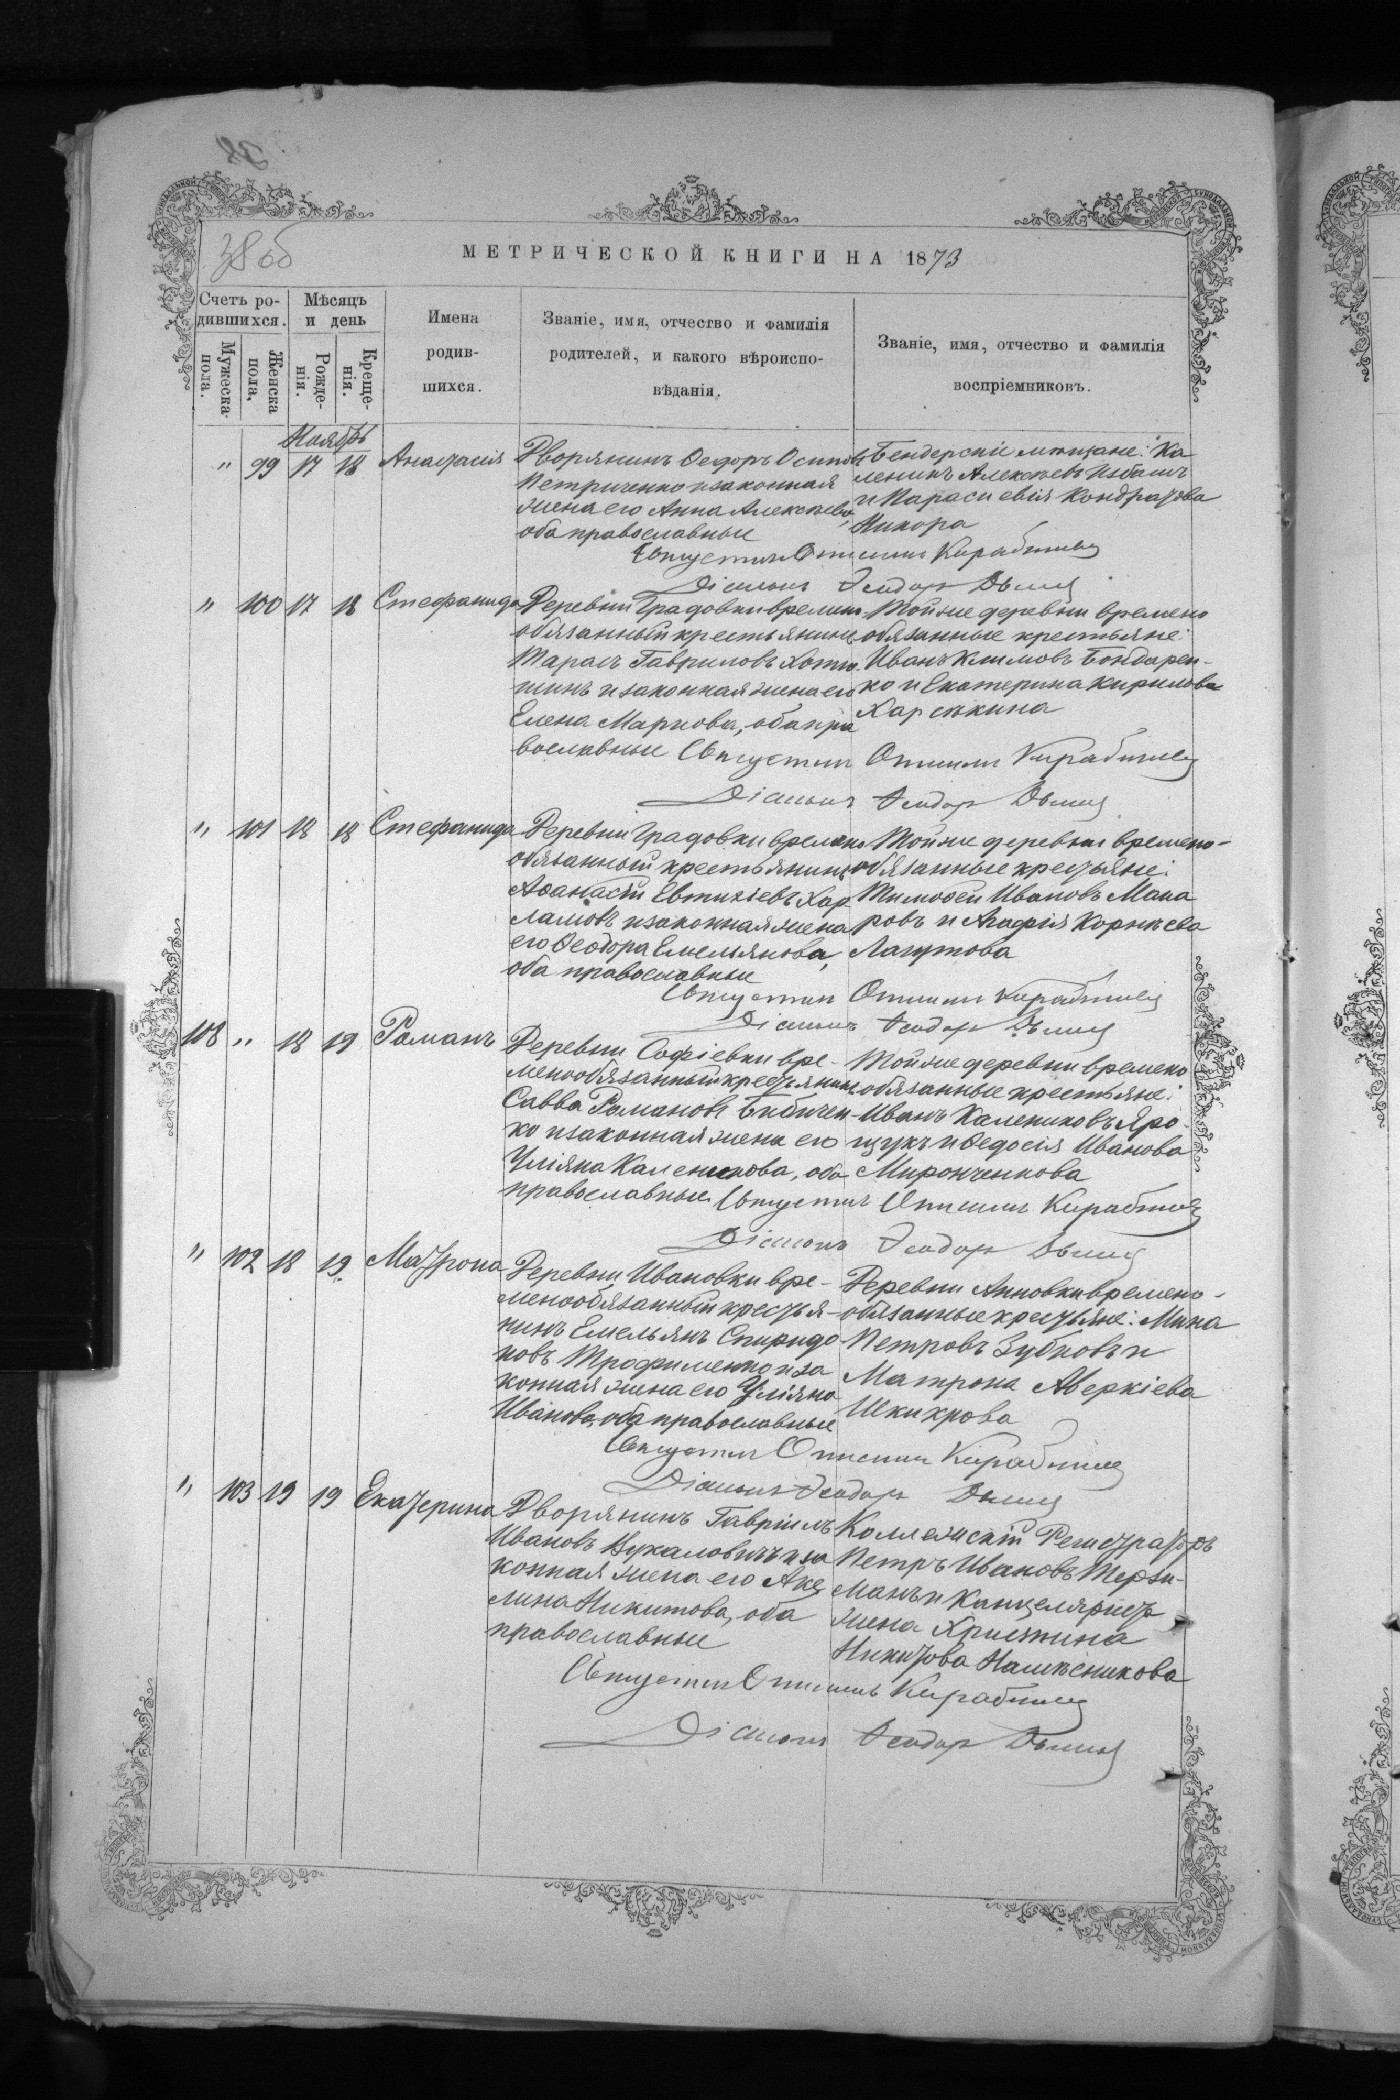 38 об
МЕТРИЧЕСКОЙ КНИГИ НА 1873
Счетъ ро-
дившихся.
Мужеска-
пола.
Женска
пола.
Мѣсяцъ
и день
Рожде-
нія.
Креще-
нія.
Имена
родив-
шихся.
Званіе, имя, отчество и фамилія
родителей, и какого вѣроиспо-
вѣданія.
Званіе, имя, отчество и фамилія
воспріемниковъ.
Ноябрь
" 99 17 18 Анастасія
Дворянинъ Ѳеодоръ Осиповъ
Петриченко и законная
жена его Анна Алексѣева,
оба православные
Бендерскіе мѣщане: Ка
леникъ Алексѣевъ Избашъ
и Параскевія Кондратова
Никора
Діаконъ Ѳеодоръ
" 100 17 18 Стефанида
Деревни Градовки времено-
обязанный крестьянинъ
Тарасъ Гавриловъ
и законная жена его
Елена Маркова, оба пра
вославные
Той же деревни времено
обязанные крестьяне:
Иванъ Климовъ Бондарен-
ко и Екатерина Кирилова
Діаконъ Ѳеодоръ
" 101 18 18 Стефанида
Деревни Градовки времено
обязанный крестьянинъ
Аѳанасій Евтихіевъ Хар
ламовъ и законная жена
его Ѳеодора Емельянова,
оба православные
Той же деревни времено-
обязанные крестьяне:
Тимоѳей Ивановъ Мака
ровъ и Агафія Корнѣева
Лагутова
Діаконъ Ѳеодоръ
108 " 18 19 Романъ
Деревни Софіевки вре-
менообязанный крестьянинъ
Савва Романовъ Бибичен
ко и законная жена его
Уліяна Каленикова, оба
православные
Той же деревни времено
обязанные крестьяне:
Иванъ Калениковъ Яро
щукъ и Ѳедосія Иванова
Миронченкова
Діаконъ Ѳеодоръ
" 102 18 19 Матрона
Деревни Ивановки вре-
менообязанный крестья-
нинъ Емельянъ Спиридо
новъ Трофименко и за
конная жена его Уліяна
Иванова, оба православные
Деревни Анновки времено-
обязанные крестьяне: Мина
Петровъ Зубковъ и
Матрона Аверкіева
Діаконъ Ѳеодоръ
" 103 19 19 Екатерина
Дворянинъ Гавріилъ
Ивановъ Вукаловичъ и за
конная жена его Аке
лина Никитова, оба
православные
Коллежскій Регистраторъ
Петръ Ивановъ Терзи-
манъ и Канцеляриста
жена Христина
Никитова
Діаконъ Ѳеодоръ